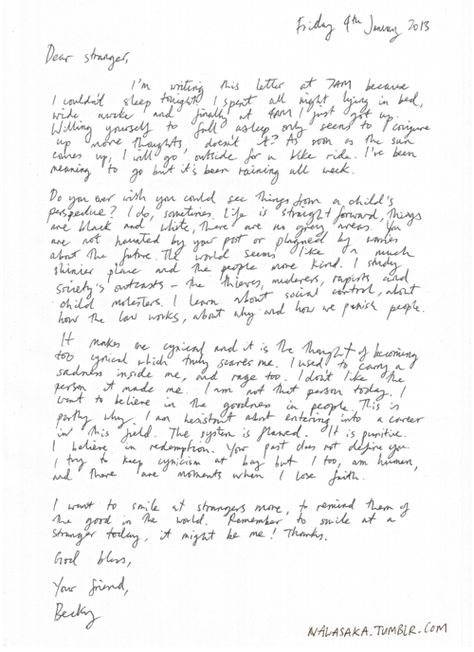 Friday 4th January 2013
Dear stranger,
I'm writing this letter at 7AM because
I couldn't sleep tonight. I spent all night lying in bed,
wide awake and finally at 4AM I just got up.
Willing yourself to fall asleep only seems to conjure
up more thoughts, doesn't it? As soon as the sun
comes up, I will go outside for a bike ride. I've been
meaning to go but it's been raining all week.
Do you ever wish you could see things from a child's
perspective? I do, sometimes. Life is straight forward, things
are black and white, there are no grey areas. You
are not haunted by your past or plagued by worries
about the future. The world seems like a much
shinier place and the people more kind. I study
society's outcasts – the thieves, murderers, rapists and
child molesters. I learn about social control, about
how the law works, about why and how we punish people.
It makes me cynical and it is the thought of becoming
too cynical which truly scares me. I used to carry a
sadness inside me, and rage too. I don't like the
person it made me. I am not that person today. I
want to believe in the goodness in people. This is
partly why I am hesitant about entering into a career
in this field. The system is flawed. It is punitive.
I believe in redemption. Your past does not define you.
I try to keep cynicism at bay but I too, am human,
and there are moments when I lose faith.
I want to smile at strangers more, to remind them of
the good in the world. Remember to smile at a
stranger today, it might be me! Thanks.
God bless,
Your friend,
Becky
NALASAKA.TUMBLR.COM